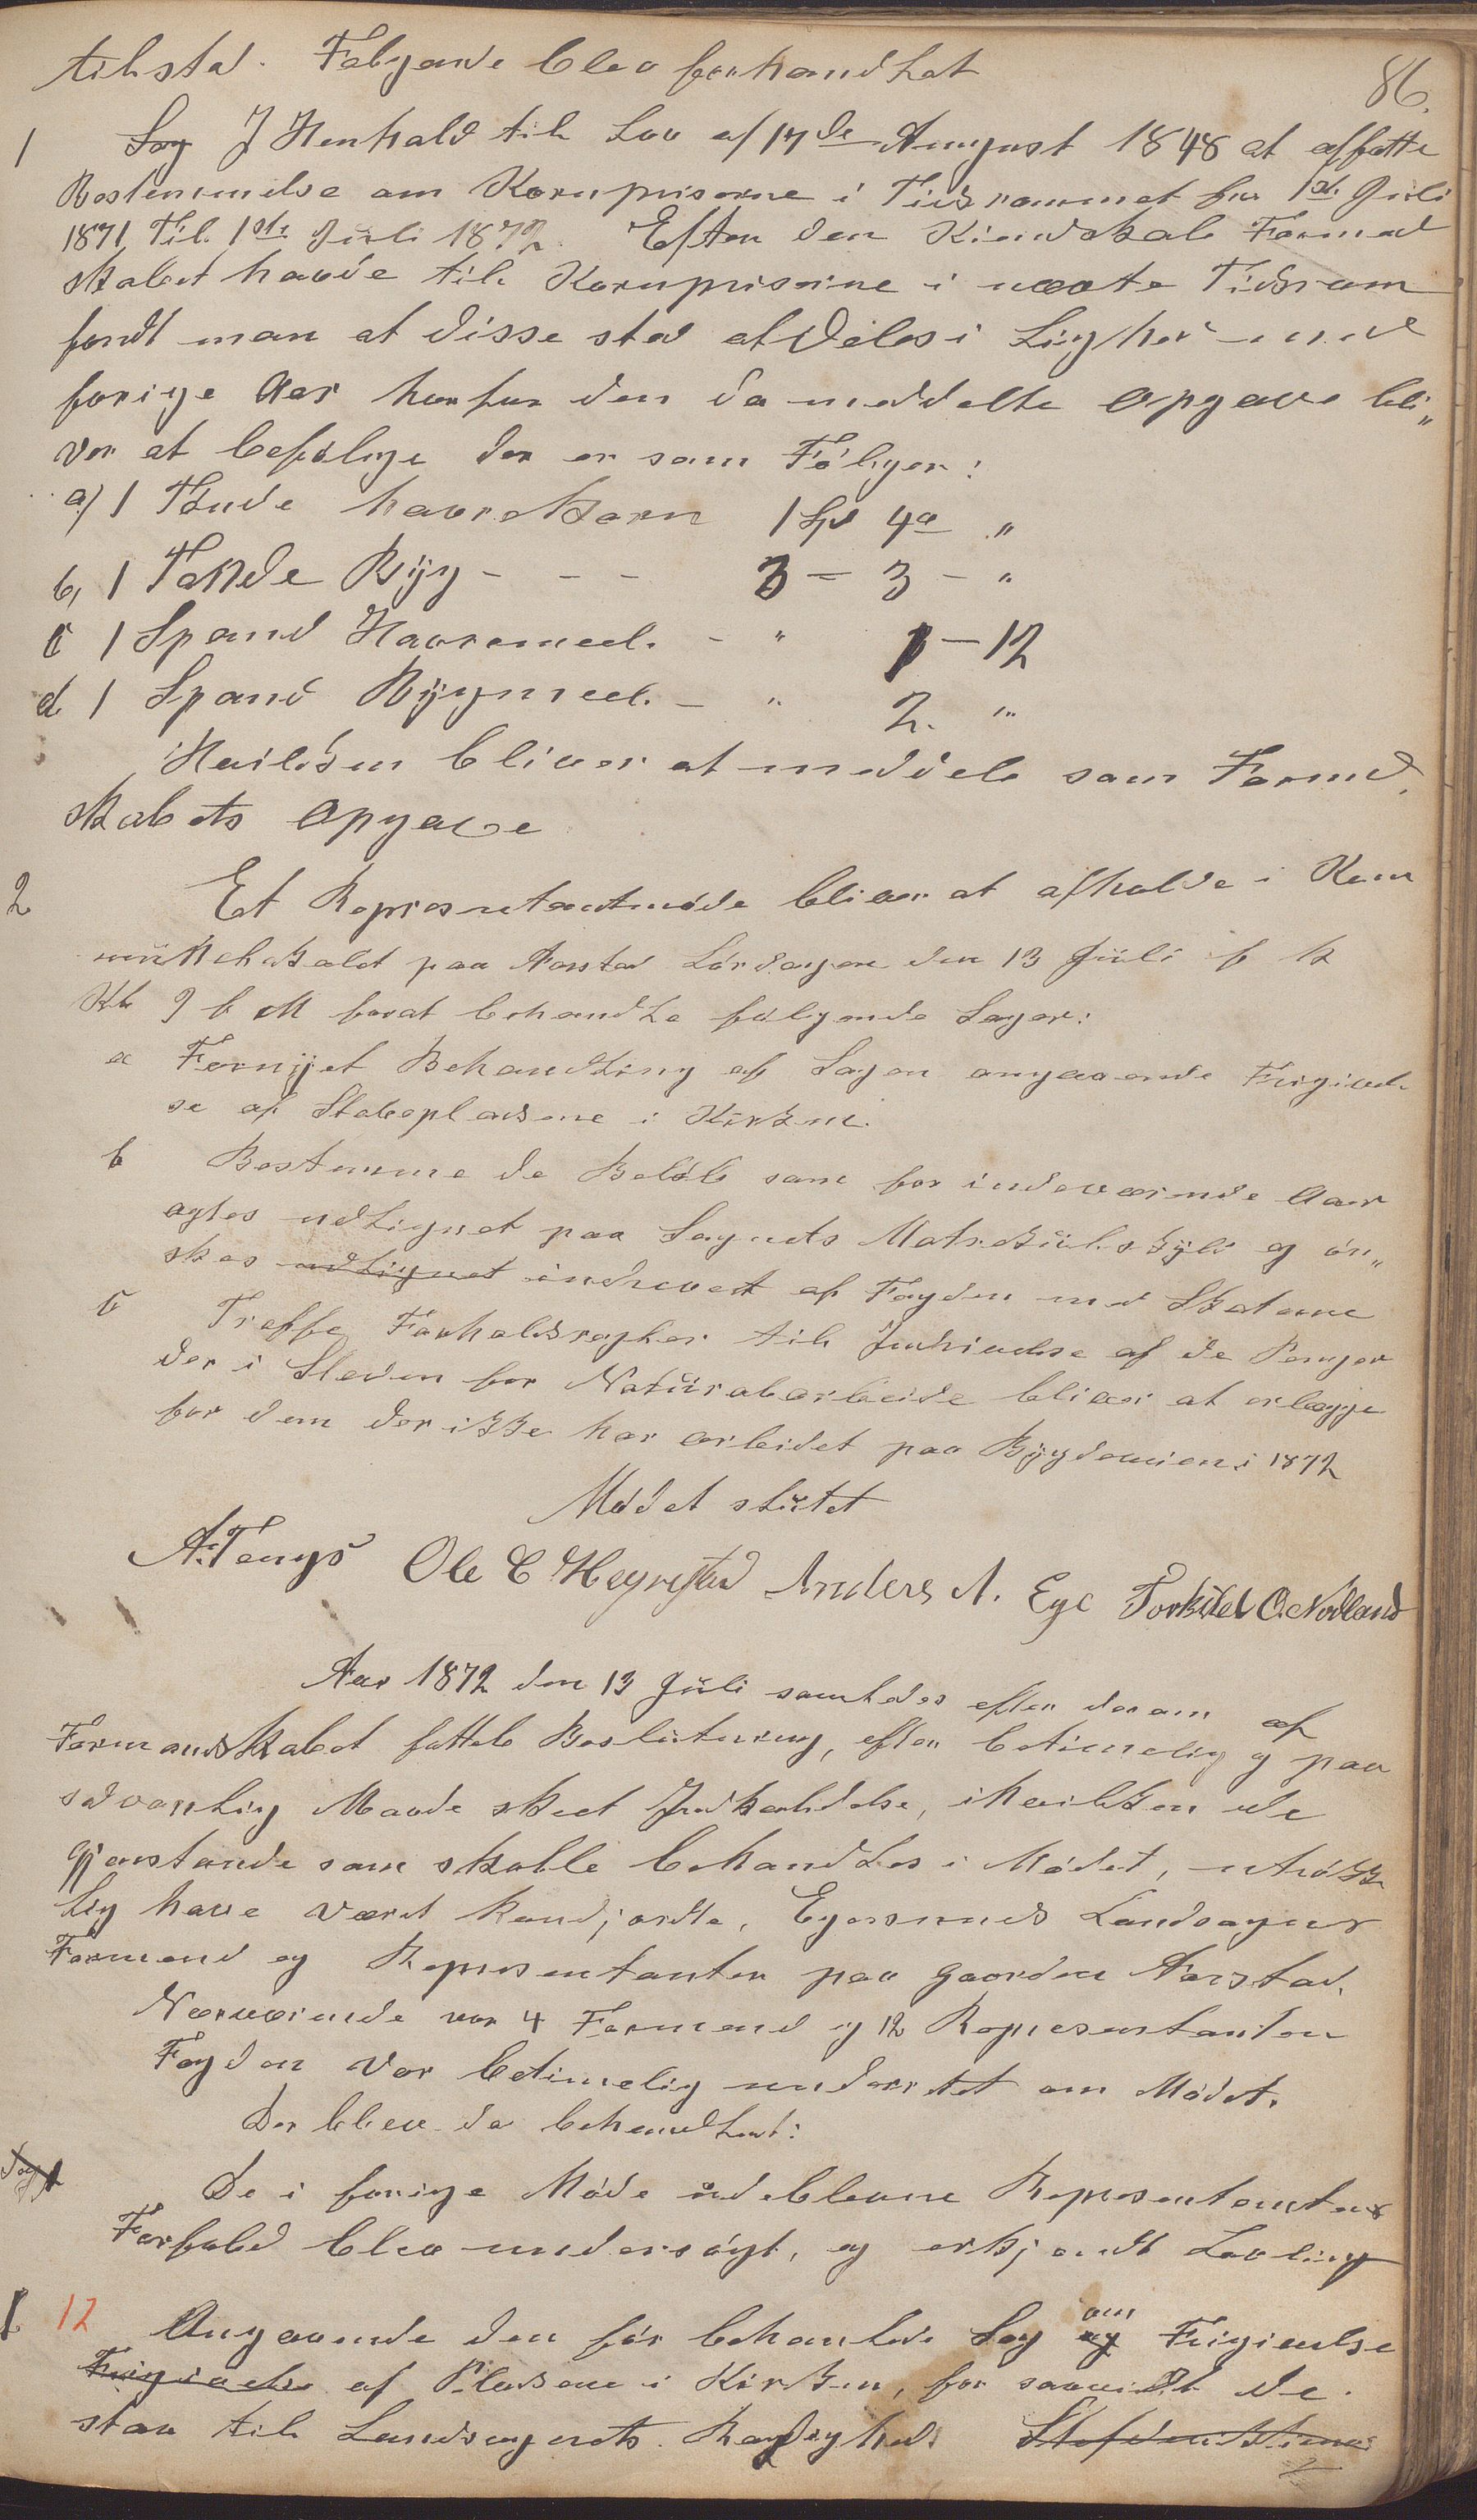 tilsted. Følgende blev forhandlet
86.
1 Sag I Henhold til Lov af 17de August 1848 at affatte
Bestemmelse om Kornpriserne i Tidsrummet fra 1ste Juli
1871 Til 1ste Juli 1872. Efter den Kiendskab Formend
skabet havde til Kornpriserne i nevte Tidsrum
fandt man at disse stod aldeles i Lighed med
forige Aar hvorfor den da meddelte Opgave bli„
ver at befølge der er som Følger:
a) 1 Tønde havrekorn 1 Spd 4 "
b, 1 Tønde Byg - - - 3 - 3 - "
c 1 Spand Havremeel. - " 1 - 12
d 1 Spand Bygmeel. - " 2. "
Hvilken bliver at meddele som Formd.
skabets Opgave
2 Et Represententmøde bliver at afholde i Kom
munelokalet paa Aarstad Lørdagen den 13 Juli f k
Kl 9 f M for at behandle følgende Sager:
a Fornyet Behandling af Sagen angaaende Frigivel
se af Stolepladsene i Kirken.
b Bestemme de Beløb som for indeværende Aar
agtes udlignet paa Sognets Matrikulskyld og øn„
skes udlignet indrevet af Fogden med Skaterne
c Treffe Forholdsregler til Indrivelse af de Penger
der i Steden for Naturalarbeide bliver at erlegge
for dem der ikke har arbeidet paa Bygdeveien i 1872
Mødet slutet
A. Tengs Ole C Hegrestad Anders A. Ege Torkild O. Nodland
Aar 1872 den 13 Juli samledes efter derom af
Formandskabet fattet Beslutning, efter betimelig og paa
sedvanlig Maade skeet Indkaldelse, i hvilken de
Gjenstande som skulle behandles i Mødet, utrøkke
lig have været kundgjordte, Egersunds Landsogns
Formend og Representanter paa Gaarden Aarstad.
Nærværende var 4 Formend og 12 Representanter
Fogden var betimelig underretet om Mødet.
Der blev da behandlet:
Sag 1
De i forige Møde udeblevne Representanters
Forfald blev undersøgt, og erkjendt Lovlig
1 12 Angaaende den før behandlede Sag og om Frigivelse
Frigivelse af Pladsene i Kirken, for saavidt de
staa til Landsognets Raadighed.